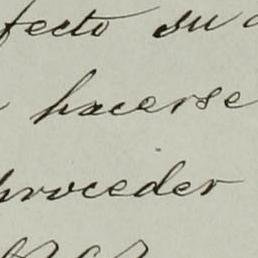 fecto su
hacerse
proceder